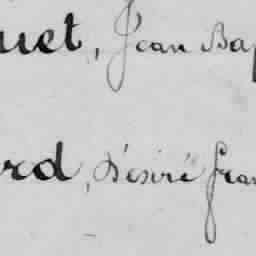 uet, Jean Bap
rd, Désiré fran